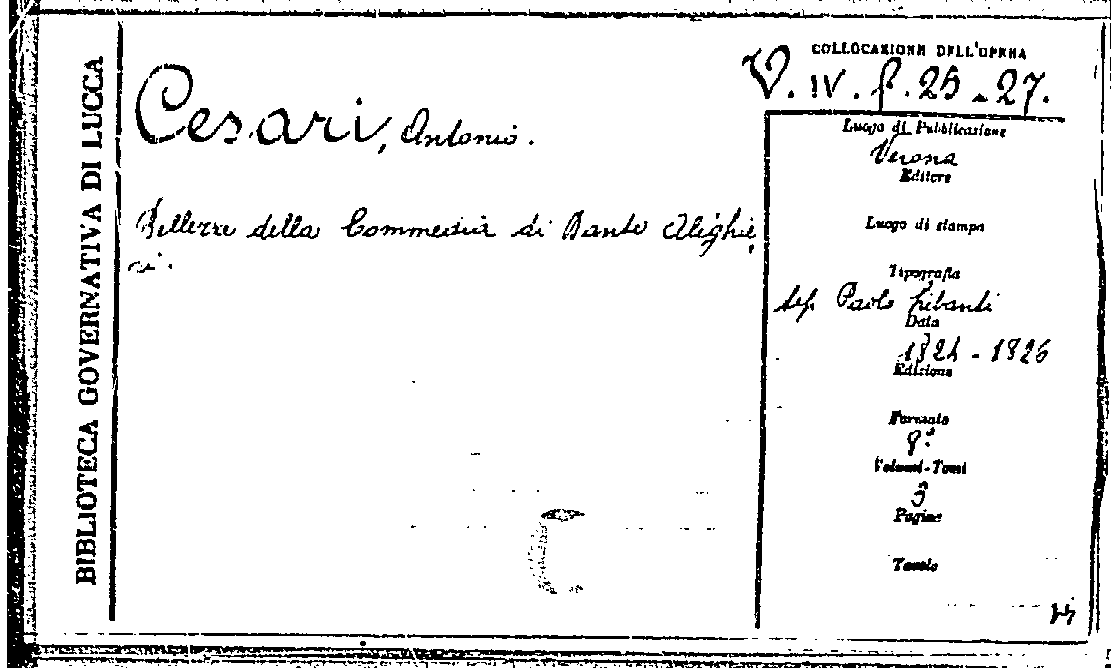 BIBLIOTECA GOVERNATIVA DI LUCCA
Cesari, Antonio.
Bellezze della Commedia di Dante Alighie
ri.
COLLOCAZIONE DELL'OPERA
V. IV. f. 25-27.
Luogo di Pubblicazione
Verona
Editore
Luogo di stampa
Tipografia
tip. Paolo Libanti
Data
1824-1826
Edizione
Formato
8°
Volumi-Tomi
3
Pagine
Tavole